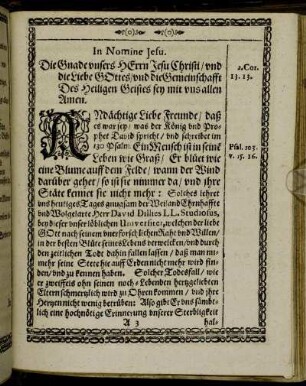 In Nomine Jesu.
Die Gnade unsers HErrn Jesu Christi/ vnd
die Liebe GOttes/ vnd die Gemeinschafft
Des Heiligen Geistes sey mit vns allen
Amen.
2. Cor.
13. 13.
ANdächtige Liebe Freunde/ daß
es war sey/ was der König vnd Pro-
phet David spricht/ vnd schreibet im
130 Psalm: Ein Mensch ist in seinē
Leben wie Graß/ Er blüet wie
eine Blume auff dem Felde/ wann der Wind
darüber gehet/ so ist sie nimmer da/ vnd ihre
Stäte kennet sie nicht mehr: Solches lehret
Psal. 103.
v. 15. 16.
uns heutiges Tages gnugsam der Weiland Ehrnhaffte
und Wolgelarte Herr David Dillies LL. Studiosus,
bey dieser unser löblichen Universitet, welchen der liebe
GOtt nach seinem unerforschlichen Raht und Willen/
in der besten Blüte seines Lebens verwelcken/ und durch
den zeitlichen Todt dahin fallen lassen/ daß man nu-
mehr seine Stete hie auff Erden nicht mehr wird fin-
den/ und zu kennen haben. Solcher Todesfall/ wie
er zweiffels ohn seinen noch-Lebenden hertzgeliebten
Eltern schmertzlich wird zu Ohren kommen/ und ihre
Hertzen nicht wenig betrüben: Also gibt Er uns sämbt-
lich eine hochnötige Erinnerung unserer Sterbligkeit
A 3
hal-